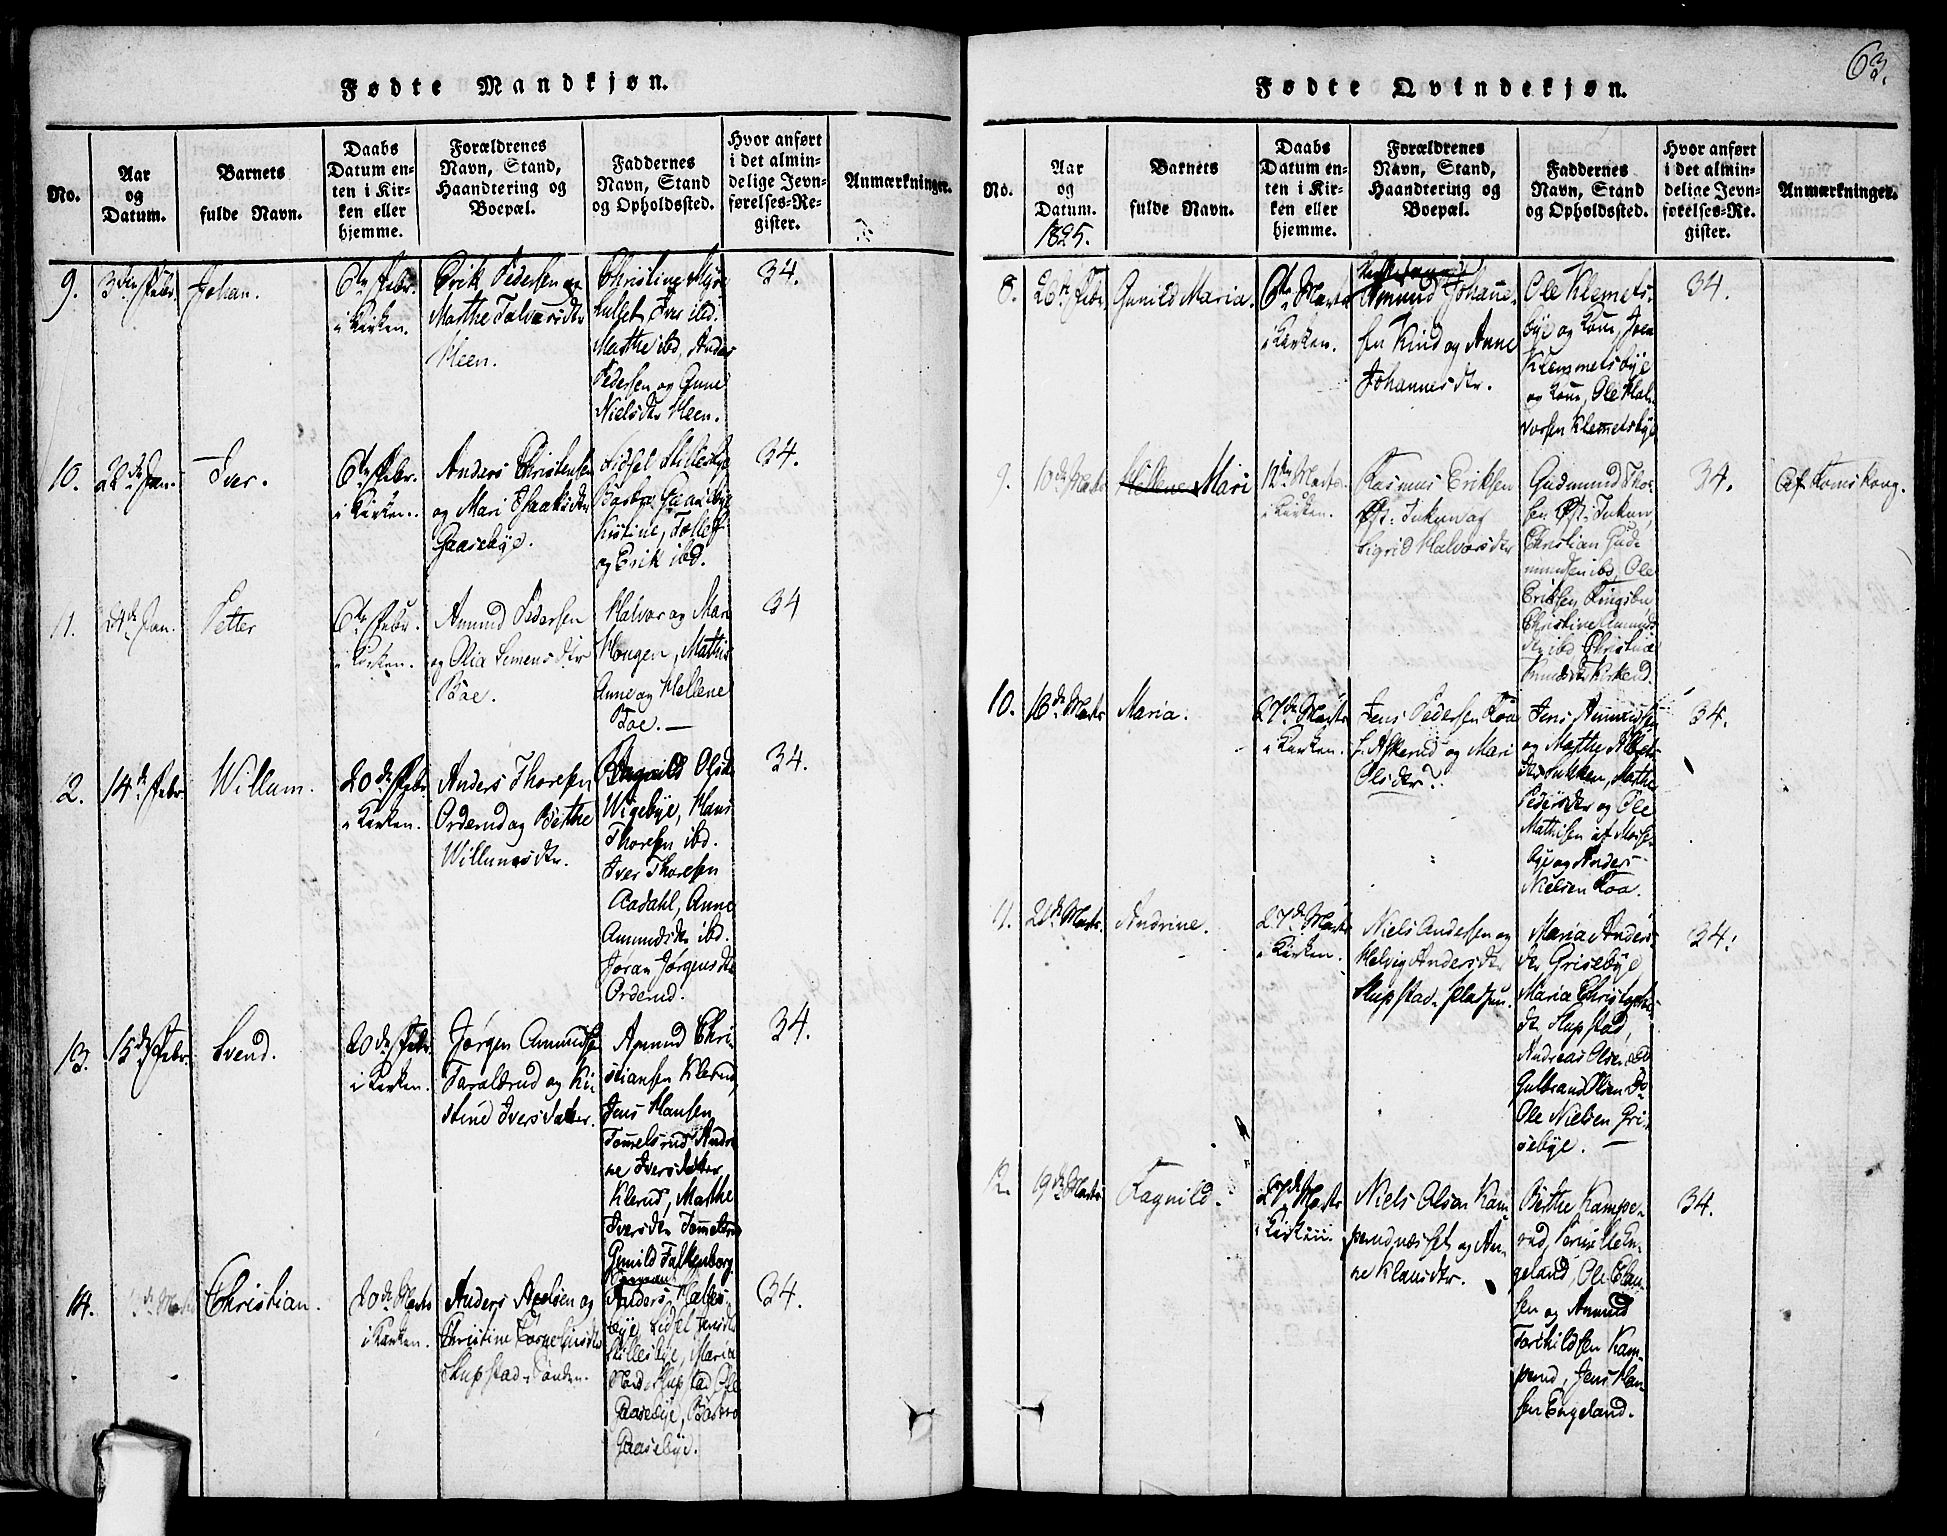 63.
Fødte Mandkjøn.
No.
Aar
og
Datum.
Barnets
fulde Navn.
Daabs
Datum en-
ten i Kir-
ken eller
hjemme.
Forældrenes
Navn, Stand,
Haandtering og
Boepæl.
Faddernes
Navn, Stand
og Opholdssted.
Hvor anført
i det almin-
delige Jevn-
førelses-Re-
gister.
Anmærkninger.
9.
3die Febr.
Johan.
6te Febr.
i Kirken.
Erik Pedersen og
Marthe
Meen.
Christine
Iver ibd.
Marthe ibd, Anders
Pedersen og Anne
Nielsdtr Meen.
34.
10.
28de Jan.
Iver.
6te Febr.
i Kirken.
Anders Christensen
og Mari Isaaksdtr
Gaasebye.
Sidsel
Kistine, Tollef
og Erik ibd.
34.
11.
24de Jan.
Petter
6te Febr.
i Kirken.
Amund Pedersen
og Olia Simensdtr
Boe.
Halvor og Mari
Haugen, Mathis
Anne og Hellene
Boe. —
34
2.
14de Febr.
Willum.
20de Febr.
i Kirken.
Anders Thoresen
Orderud og Berthe
Willumsdtr.
Ragnild Olsdtr
Wigebye, Hans
Thoresen ibd.
Iver Thoresen
Aadahl, Anne
Amundsdtr ibd.
Jøran Jørgensdtr
Orderud.
34.
13.
15de Febr.
Svend.
20de Febr.
i Kirken.
Jørgen Amundsen
Taraldrud og Ki-
stine Iversdatter.
Amund Chri-
stiansen Klerud,
Jens Hansen
Tomelsrud, Andri-
ne Iversdatter
Klerud, Marthe
Iversdtr Tomelsrud
Gunild Falkenborg
34.
14.
Marts
Christian.
20de Marts
i Kirken.
Anders Axelsen og
Christine Corneliusdtr
Skupstad-Sønden.
Anders Halles-
bye, Sidsel Jensdtr
Skillesbye, Maria
Nord-Skupstad, Ole
Gaasebye, Barbro
Gaasebye.
34.
Fødte Qvindekjøn.
No.
Aar
og
Datum.
1825.
Barnets
fulde Navn.
Daabs
Datum en-
ten i Kir-
ken eller
hjemme.
Forældrenes
Navn, Stand,
Haandtering og
Boepæl.
Faddernes
Navn, Stand
og Opholdssted.
Hvor anført
i det almin-
delige Jevn-
førelses-Re-
gister.
Anmærkninger.
8.
26de Febr.
Gunild Maria.
6te Marts
i Kirken.
Amund Johanne-
sen Kind og Anne
Johannesdtr.
Ole Klemets-
bye og Kone, Joen
Klemmetsbye
og Kone, Ole Hal-
vorsen Klemetsbye
34.
9.
10de Marts
Hellene Mari
12te Marts
i Kirken.
Rasmus Eriksen
Øst-Inkun og
Sigrid Halvorsdtr
Gudmund Thor-
sen Øst-Inkun,
Christian Gude-
mundsen ibd, Ole
Eriksen Kingsbu,
Christine Amunds-
dtr ibd, Christine
Knudsdtr Kirkend.
34.
Af Romskoug.
10.
16de Marts
Maria.
27de Marts
i Kirken.
Jens Pedersen Kroa
Askerud og Mari
Olsdtr.
Jens Amundsen
og Marthe
Marthe
Pedersdtr og Ole
Mathisen af Morse-
bye og Anders
Nielsen Kroa.
34.
11.
20de Marts
Andrine.
27de Marts
i Kirken.
Niels Andersen og
Helvig Andersdtr
Skupstad-Pladsen.
Maria Anders-
dtr Grisebye,
Maria Christophers-
dtr Skupstad,
Andreas Olsen do
Gulbrand Olsen do
Ole Nielsen Gri-
sebye. —
34.
12.
19de Marts
Ragnild.
27de Marts
i Kirken.
Niels Olsen Kam-
perudnæsset og An-
ne Klausdtr.
Berthe Kampe-
rud, Pernille En-
geland, Ole Clau-
sen og Amund
Torkildsen Kam-
perud, Jens Han-
sen Engeland.
34.